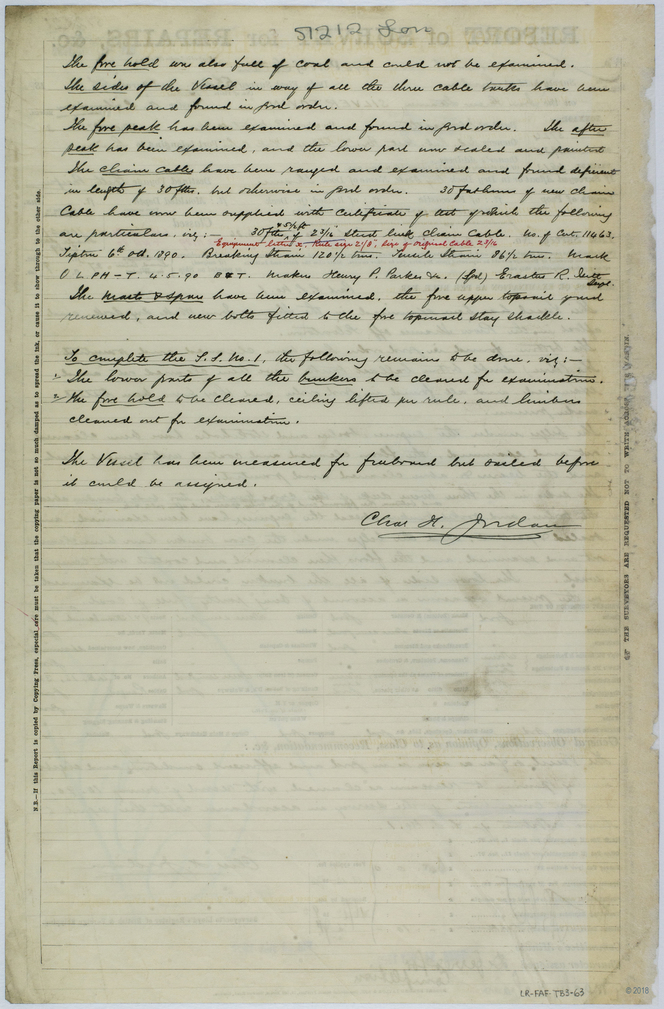 51212 Lon
The fore hold was also full of coal and could not be examined.
The sides of the Vessel in way of all the three cable tanks have been
examined and found in good order.
The fore peak has been examined and found in good order. The after
peak has been examined, and the lower part now scaled and painted
The chain cables have been ranged and examined and found deficient
in length of 30 fths. but otherwise in good order. 30 fathoms of new chain
Cable have now been supplied with Certificate of test of which the following
are particulars, viz:— 30 fths of 2 3/16 Stud link Chain Cable. No. of Cert. 11463.
Equipment letter Rule size 2 1/8, Size of original Cable 2 3/16
Tipton 6th Oct. 1890. Breaking Strain 120 1/2 tns. Tensile Strain 86 1/2 tns. Mark
O L. P.H - T. 4.5.90 B&T. Makers Henry P. Parkes & Co. (Sgd) Erastus R.
Supt.
The Masts & Spars have been examined, the fore upper topsail yard
renewed, and new bolts fitted to the fore topmast stay shackle.
To complete the S.S. No. 1, the following remain to be done, viz:—
1. The lower parts of all the bunkers to be cleared for examination.
2. The fore hold to be cleared, ceiling lifted per rule, and limbers
cleared out for examination.
The Vessel has been measured for freeboard but sailed before
it could be assigned.
Chas H. Jordan
N.B.—If this Report is copied by Copying Press, especial care must be taken that the copying paper is not so much damped as to spread the ink, or cause it to show through to the other side.
THE SURVEYORS ARE REQUESTED NOT TO WRITE ACROSS THIS MARGIN.
LR-FAF-TB3-63
© 2018